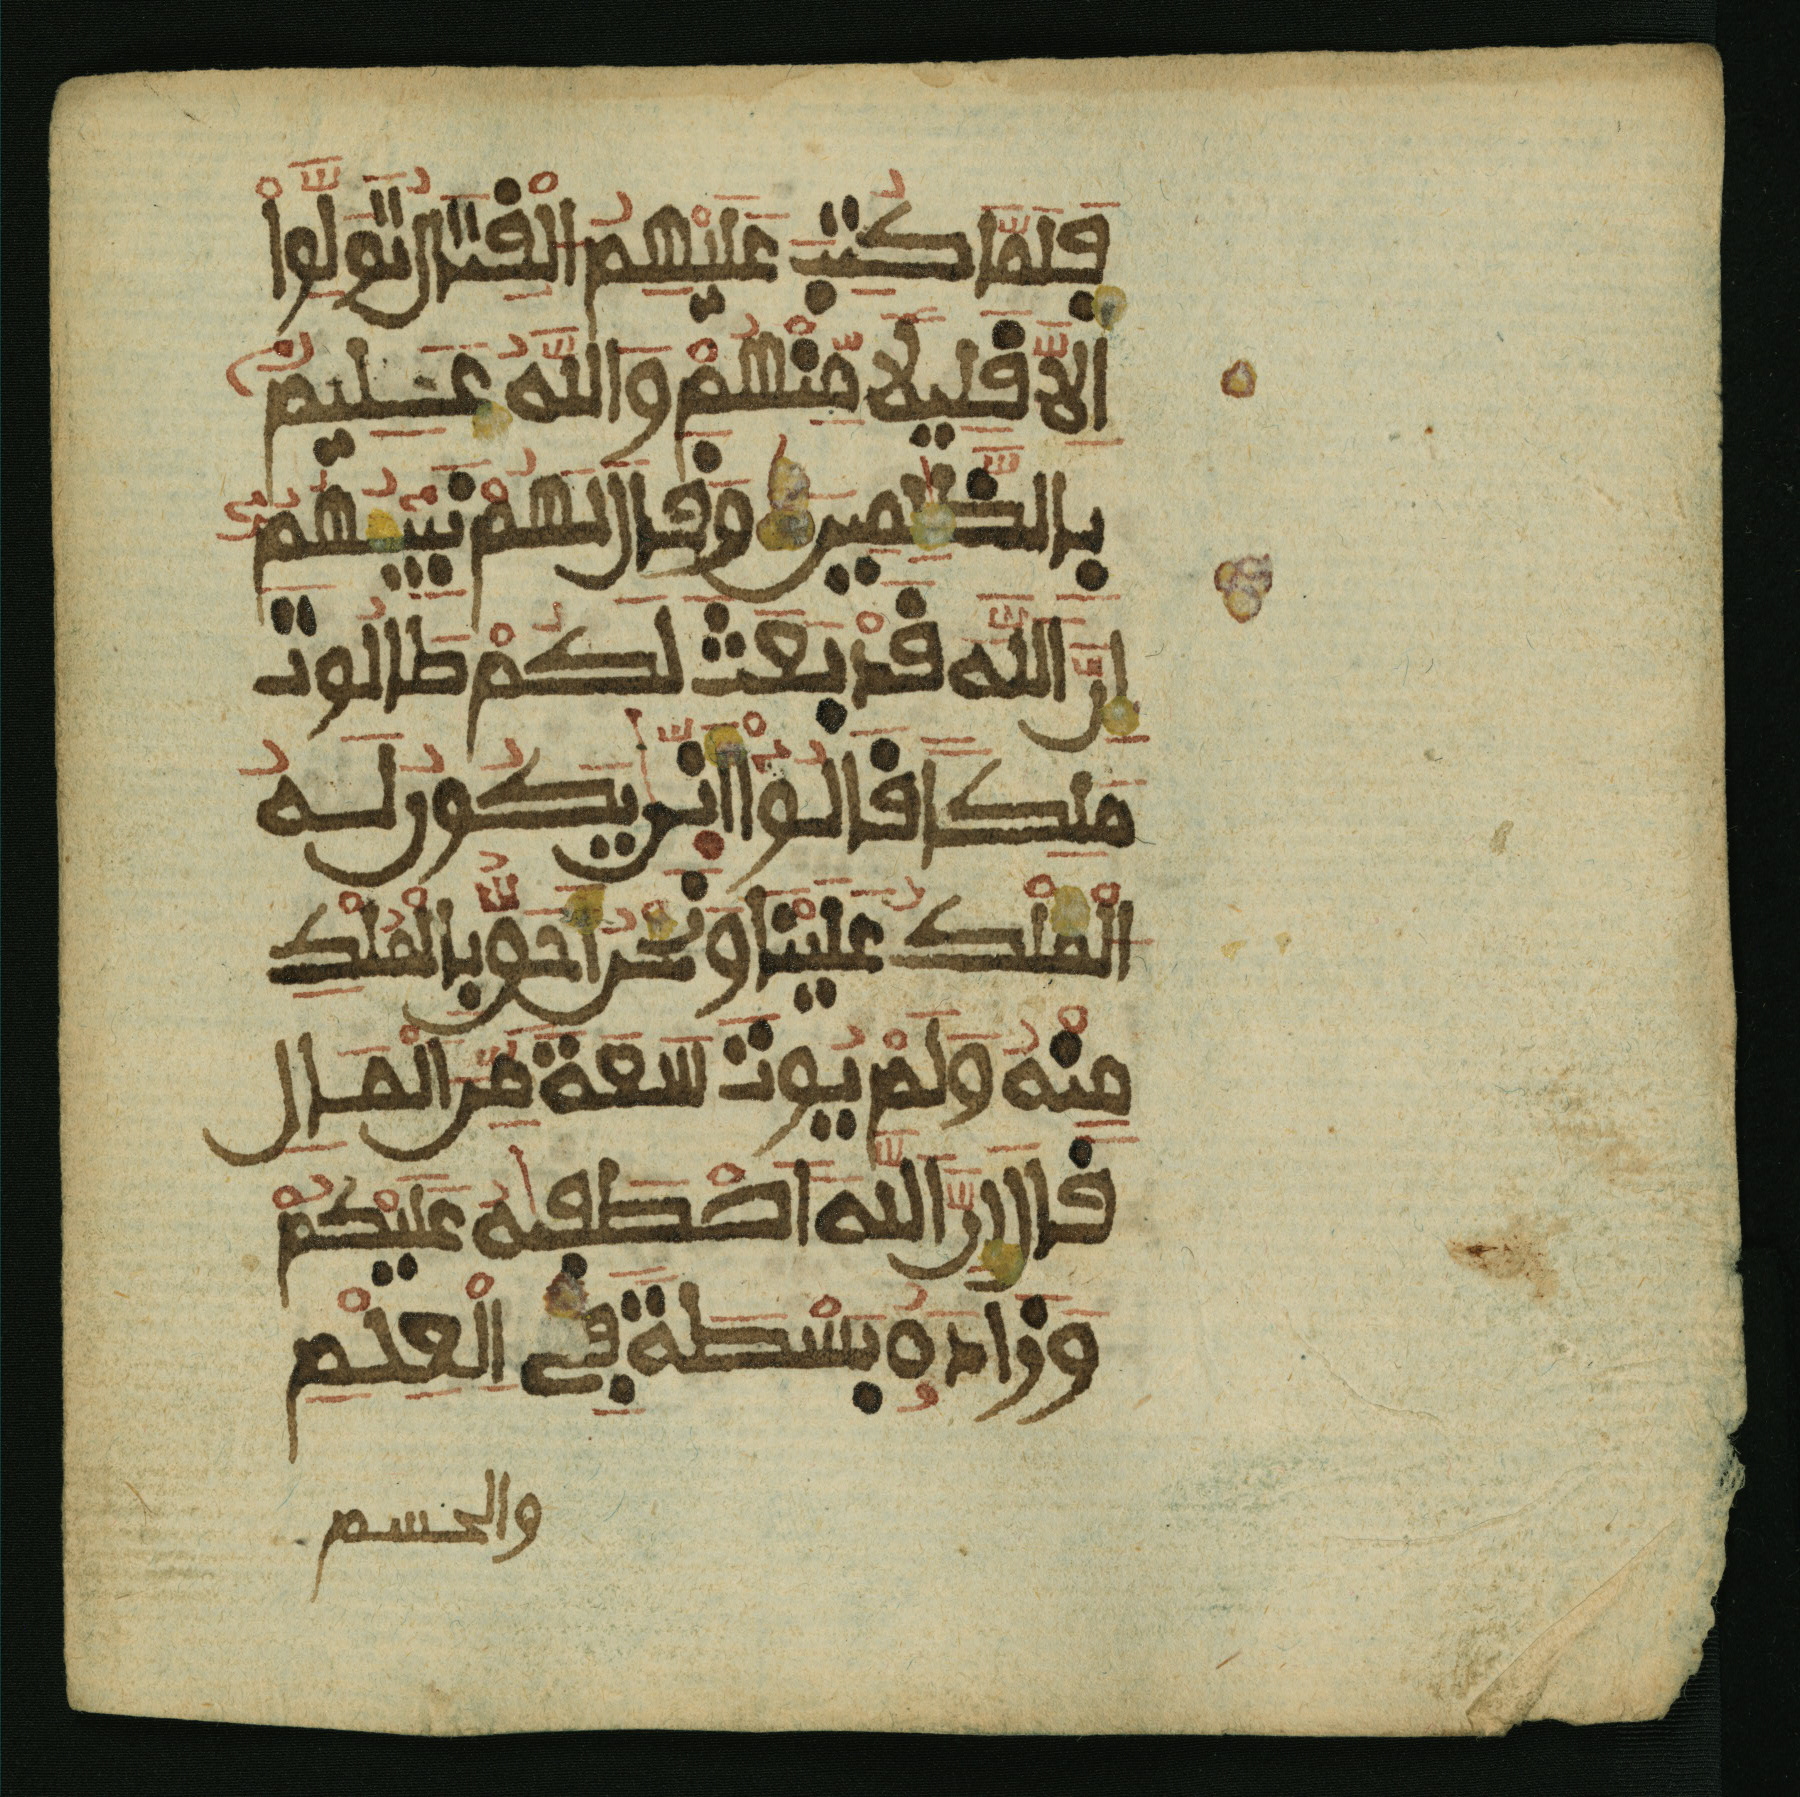 فَلَمَّا كُتِبَ عَلَيْهِمُ الْقِتَالُ تَوَلَّوْا
إِلَّا قَلِيلًا مِّنْهُمْ وَاللَّهُ عَلِيمٌ
بِالظَّٰلِمِينَ وَقَالَ لَهُمْ نَبِيُّهُمْ
إِنَّ اللَّهَ قَدْ بَعَثَ لَكُمْ طَالُوتَ
مَلِكًا قَالُوا أَنَّىٰ يَكُونُ لَهُ
الْمُلْكُ عَلَيْنَا وَنَحْنُ أَحَقُّ بِالْمُلْكِ
مِنْهُ وَلَمْ يُوتَ سَعَةً مِّنَ الْمَالِ
قَالَ إِنَّ اللَّهَ اصْطَفَيٰهُ عَلَيْكُمْ
وَزَادَهُ بَسْطَةً فِي الْعِلْمِ
والجسم